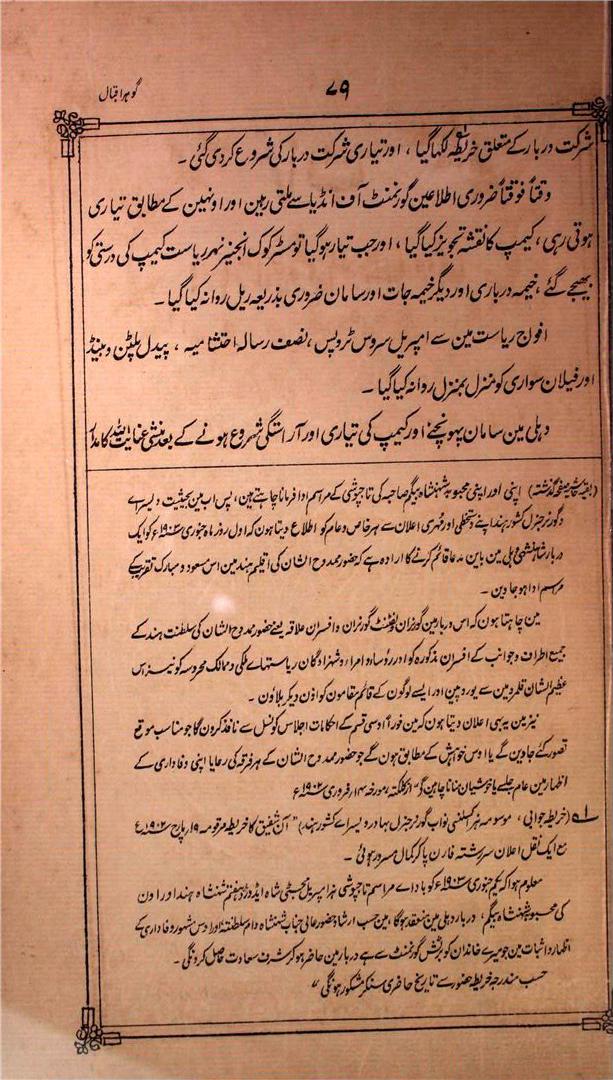 گوہر اقبال
۷۹
شرکت دربار کے متعلق خریطہ لکھا گیا ، اور تیاری شرکت دربار کی شروع کردی گئی ۔
وقتاً فوقتاً ضروری اطلاعین گورنمنٹ آف انڈیا سے ملتی رہین اور اونہین کے مطابق تیاری
ہوتی رہی ، کیمپ کا نقشہ تجویز کیا گیا ، اور جب تیار ہوگیا تو مسٹر کوک انجنیر نہر ریاست کیمپ کی درستی کو
بھیجے گئے ، خیمہ درباری اور دیگر خیمہ جات اور سامان ضروری بذریعہ ریل روانہ کیا گیا ۔
افواج ریاست مین سے امپریل سروس ٹروپس ، نصف رسالہ احتشامیہ ، پیدل پلٹن و بینڈ
اور فیلان سواری کو منزل بمنزل روانہ کیا گیا ۔
دہلی مین سامان پہونچنے اور کیمپ کی تیاری اور آراستگی شروع ہونے کے بعد منشی عنایت اللہ کامدار
(بقیہ حاشیہ صفحہ گذشتہ) اپنی اور اپنی محبوبہ شہنشاہ بیگم صاحبہ کی تاجپوشی کے مراسم ادا فرمانا چاہتے ہین ، پس اب مین بحیثیت ویسراے
و گورنر جنرل کشور ہند اپنے دستخطی اور مُہری اعلان سے ہر خاص و عام کو اطلاع دیتا ہون کہ اول روز ماہ جنوری ۱۹۰۳ء کو ایک
دربار شاہنشہی دہلی مین باین مدعا قائم کرنے کا ارادہ ہے کہ حضور ممدوح الشان کی اقلیم ہند مین اس مسعود و مبارک تقریب کے
مراسم ادا ہو جاوین ۔
مین چاہتا ہون کہ اس دربار مین گورنران و لفٹنٹ گورنران و افسران علاقہ یعنے حضور ممدوح الشان کی سلطنت ہند کے
جمیع اطراف و جوانب کے افسران مذکورہ کو اور رؤسا و امراء و شہزادگان ریاستہاے ملکی و ممالک محروسہ کو نیز اس
عظیم الشان قلمرو مین سے یوروپین اور ایسے لوگون کے قائم مقامون کو اذن دیکر بلاؤن ۔
نیز مین یہ بھی اعلان دیتا ہون کہ مین فوراً اوسی قسم کے احکامات اجلاس کونسل سے نافذ کرون گا جو مناسب موقع
تصور کئے جاوین گے یا اوس خواہش کے مطابق ہون گے جو حضور ممدوح الشان کے ہر فرقہ کی رعایا اپنی وفاداری کے
اظہار مین عام جلسے یا خوشیان منانا چاہین گی" از کلکتہ ، مورخہ ۱۴ فروری ۱۹۰۲ء
لہ (خریطہ جوابی ، موسومہ ہز اکسلنسی نواب گورنر جنرل بہادر ویسراے کشور ہند) "آن شفیق کا خریطہ مرقومہ ۱۹ مارچ ۱۹۰۲ء
مع ایک نقل اعلان سررشتہ فارن پاکر کمال مسرور ہوئی ۔
معلوم ہوا کہ یکم جنوری ۱۹۰۳ء کو باداے مراسم تاجپوشی ہز امپریل مجسٹی شاہ ایڈورڈ ہفتم شہنشاہ ہند اور اون
کی محبوبہ شہنشاہ بیگم ، دربار دہلی مین منعقد ہوگا ، مین حسب ارشاد حضور عالی جناب شہنشاہ دام سلطنتہ اور اوس مشہور وفاداری کے
اظہار و اثبات مین جو میرے خاندان کو برٹش گورنمنٹ سے ہے دربار مین حاضر ہوکر شرف سعادت حاصل کرونگی ۔
حسب مندرجہ خریطہ حضور سے تاریخ حاضری سنکر مشکور ہونگی"